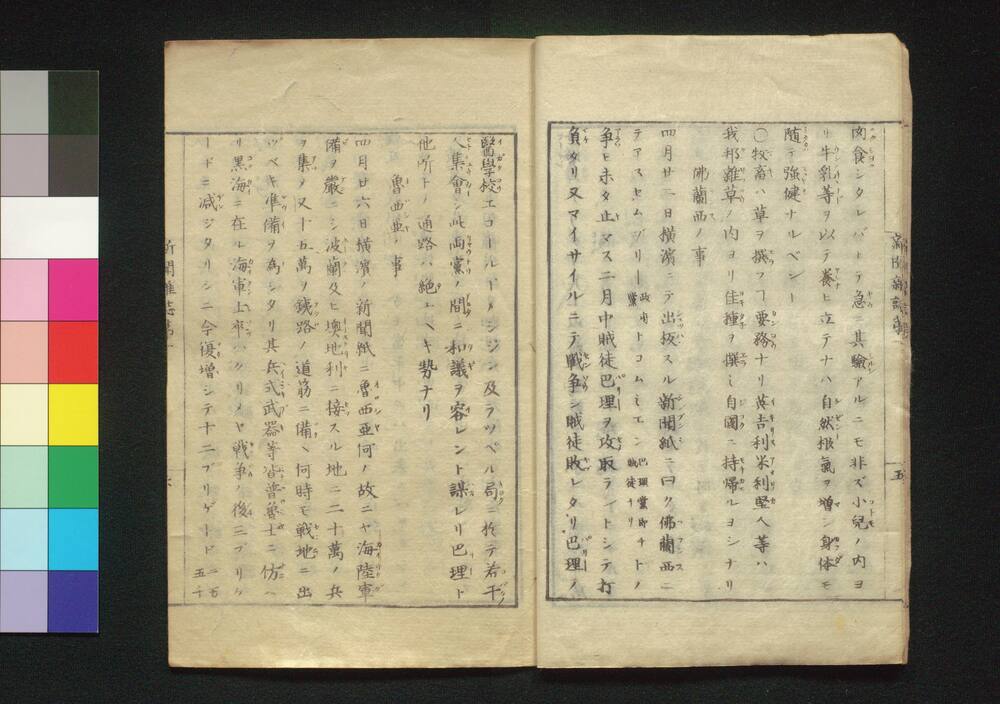 肉食シタレバトテ急ニ其驗アルニモ非ズ小兒ノ内ヨ
リ牛乳等ヲ以テ養ヒ立テナハ自然根氣ヲ増シ身体モ
随テ強健ナルベシ
○牧畜ハ草ヲ撰フヿ要務ナリ英吉利米利堅人等ハ
我邦雜草ノ内ヨリ佳種ヲ撰ミ自國ニ持歸ルヨシナリ
佛蘭西ノ事
四月廿二日横濱ニテ出板スル新聞紙ニ曰ク佛蘭西ニ
テアスセムブリー政府黨トコムミエン巴理黨即チ賊徒ナリトノ
争ヒ未タ止マス二月中賊徒巴理ヲ攻取ラントシテ打
負タリ又マイサイルニテ戰争シ賊徒敗レタリ巴理ノ
五
醫學校エコールドメジシン及ラツペル局ニ於テ若干
人集會シ此両黨ノ間ニ和議ヲ容レント謀レリ巴理ト
他所トノ通路ハ絶ユヘキ勢ナリ
魯西亞ノ事
四月廿六日横濱ノ新聞紙ニ魯西亞何ノ故ニヤ海陸軍
備ヲ嚴ニシ波蘭及ヒ墺地利ニ接スル地ニ二十萬ノ兵
ヲ集メ又十五萬ヲ鐵路ノ道筋ニ備ヘ何時モ戰地ニ出
ツベキ准備ヲ為シタリ其兵式武器等皆普魯士ニ仿ヘ
リ黒海ニ在ル海軍士卒ハクリメヤ戰争ノ後三ブリゲ
ードニ減ジタリシニ今復増シテ十二ブリゲード
新聞雜誌第一